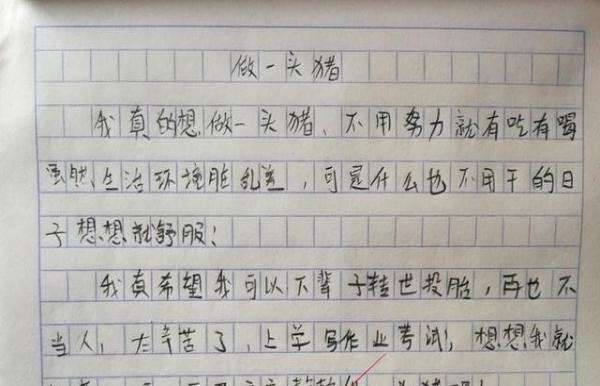 做一头猪
我真的想做一头猪、不用努力就有吃有喝
虽然、生活环境脏乱差,可是什么也不用干的日
子想想就舒服!
我真希望我可以下辈子转世投胎,再也不
当人,太辛苦了,上学写作业考试!想想我就